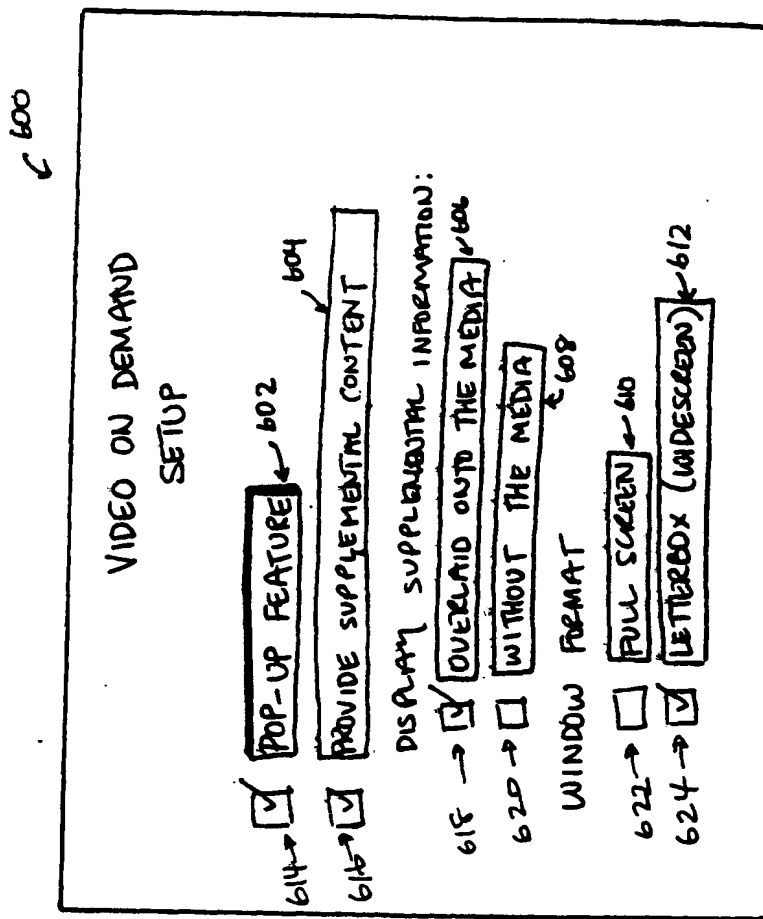 600
VIDEO ON DEMAND
SETUP
614 POP-UP FEATURE 602
616 PROVIDE SUPPLEMENTAL CONTENT 604
DISPLAY SUPPLEMENTAL INFORMATION:
618 OVERLAID ONTO THE MEDIA 606
620 WITHOUT THE MEDIA 608
WINDOW FORMAT
622 FULL SCREEN 610
624 LETTERBOX (WIDESCREEN) 612